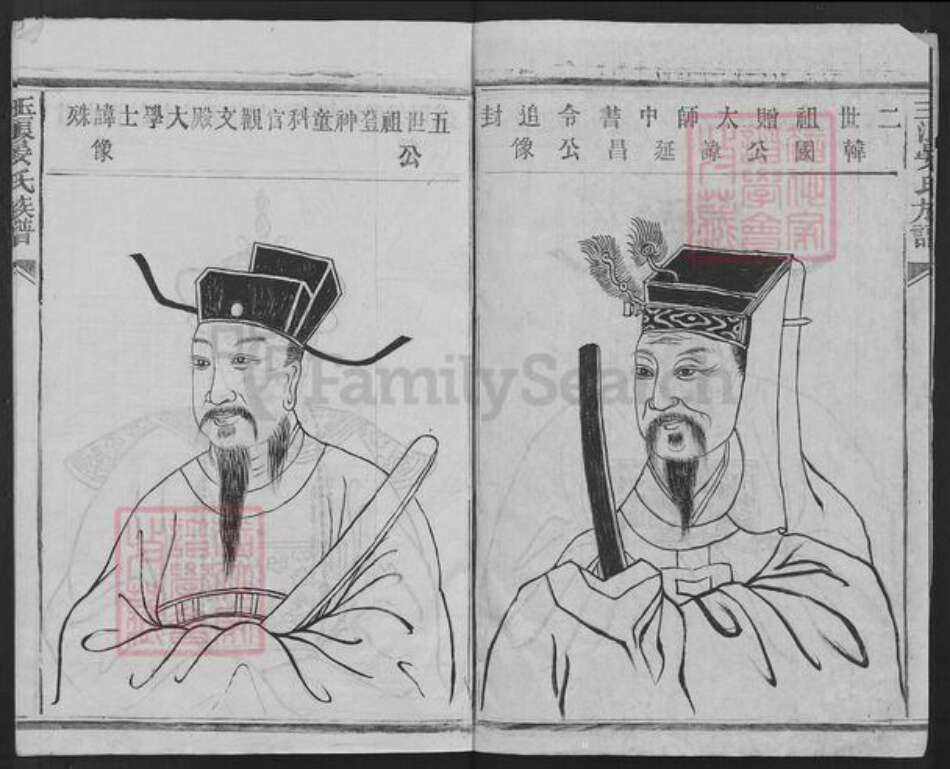 二世祖贈太師中書令追封
韓國公諱延昌公像
五世祖登神童科官觀文殿大學士諱殊
公像
晏氏族譜
FamilySearch